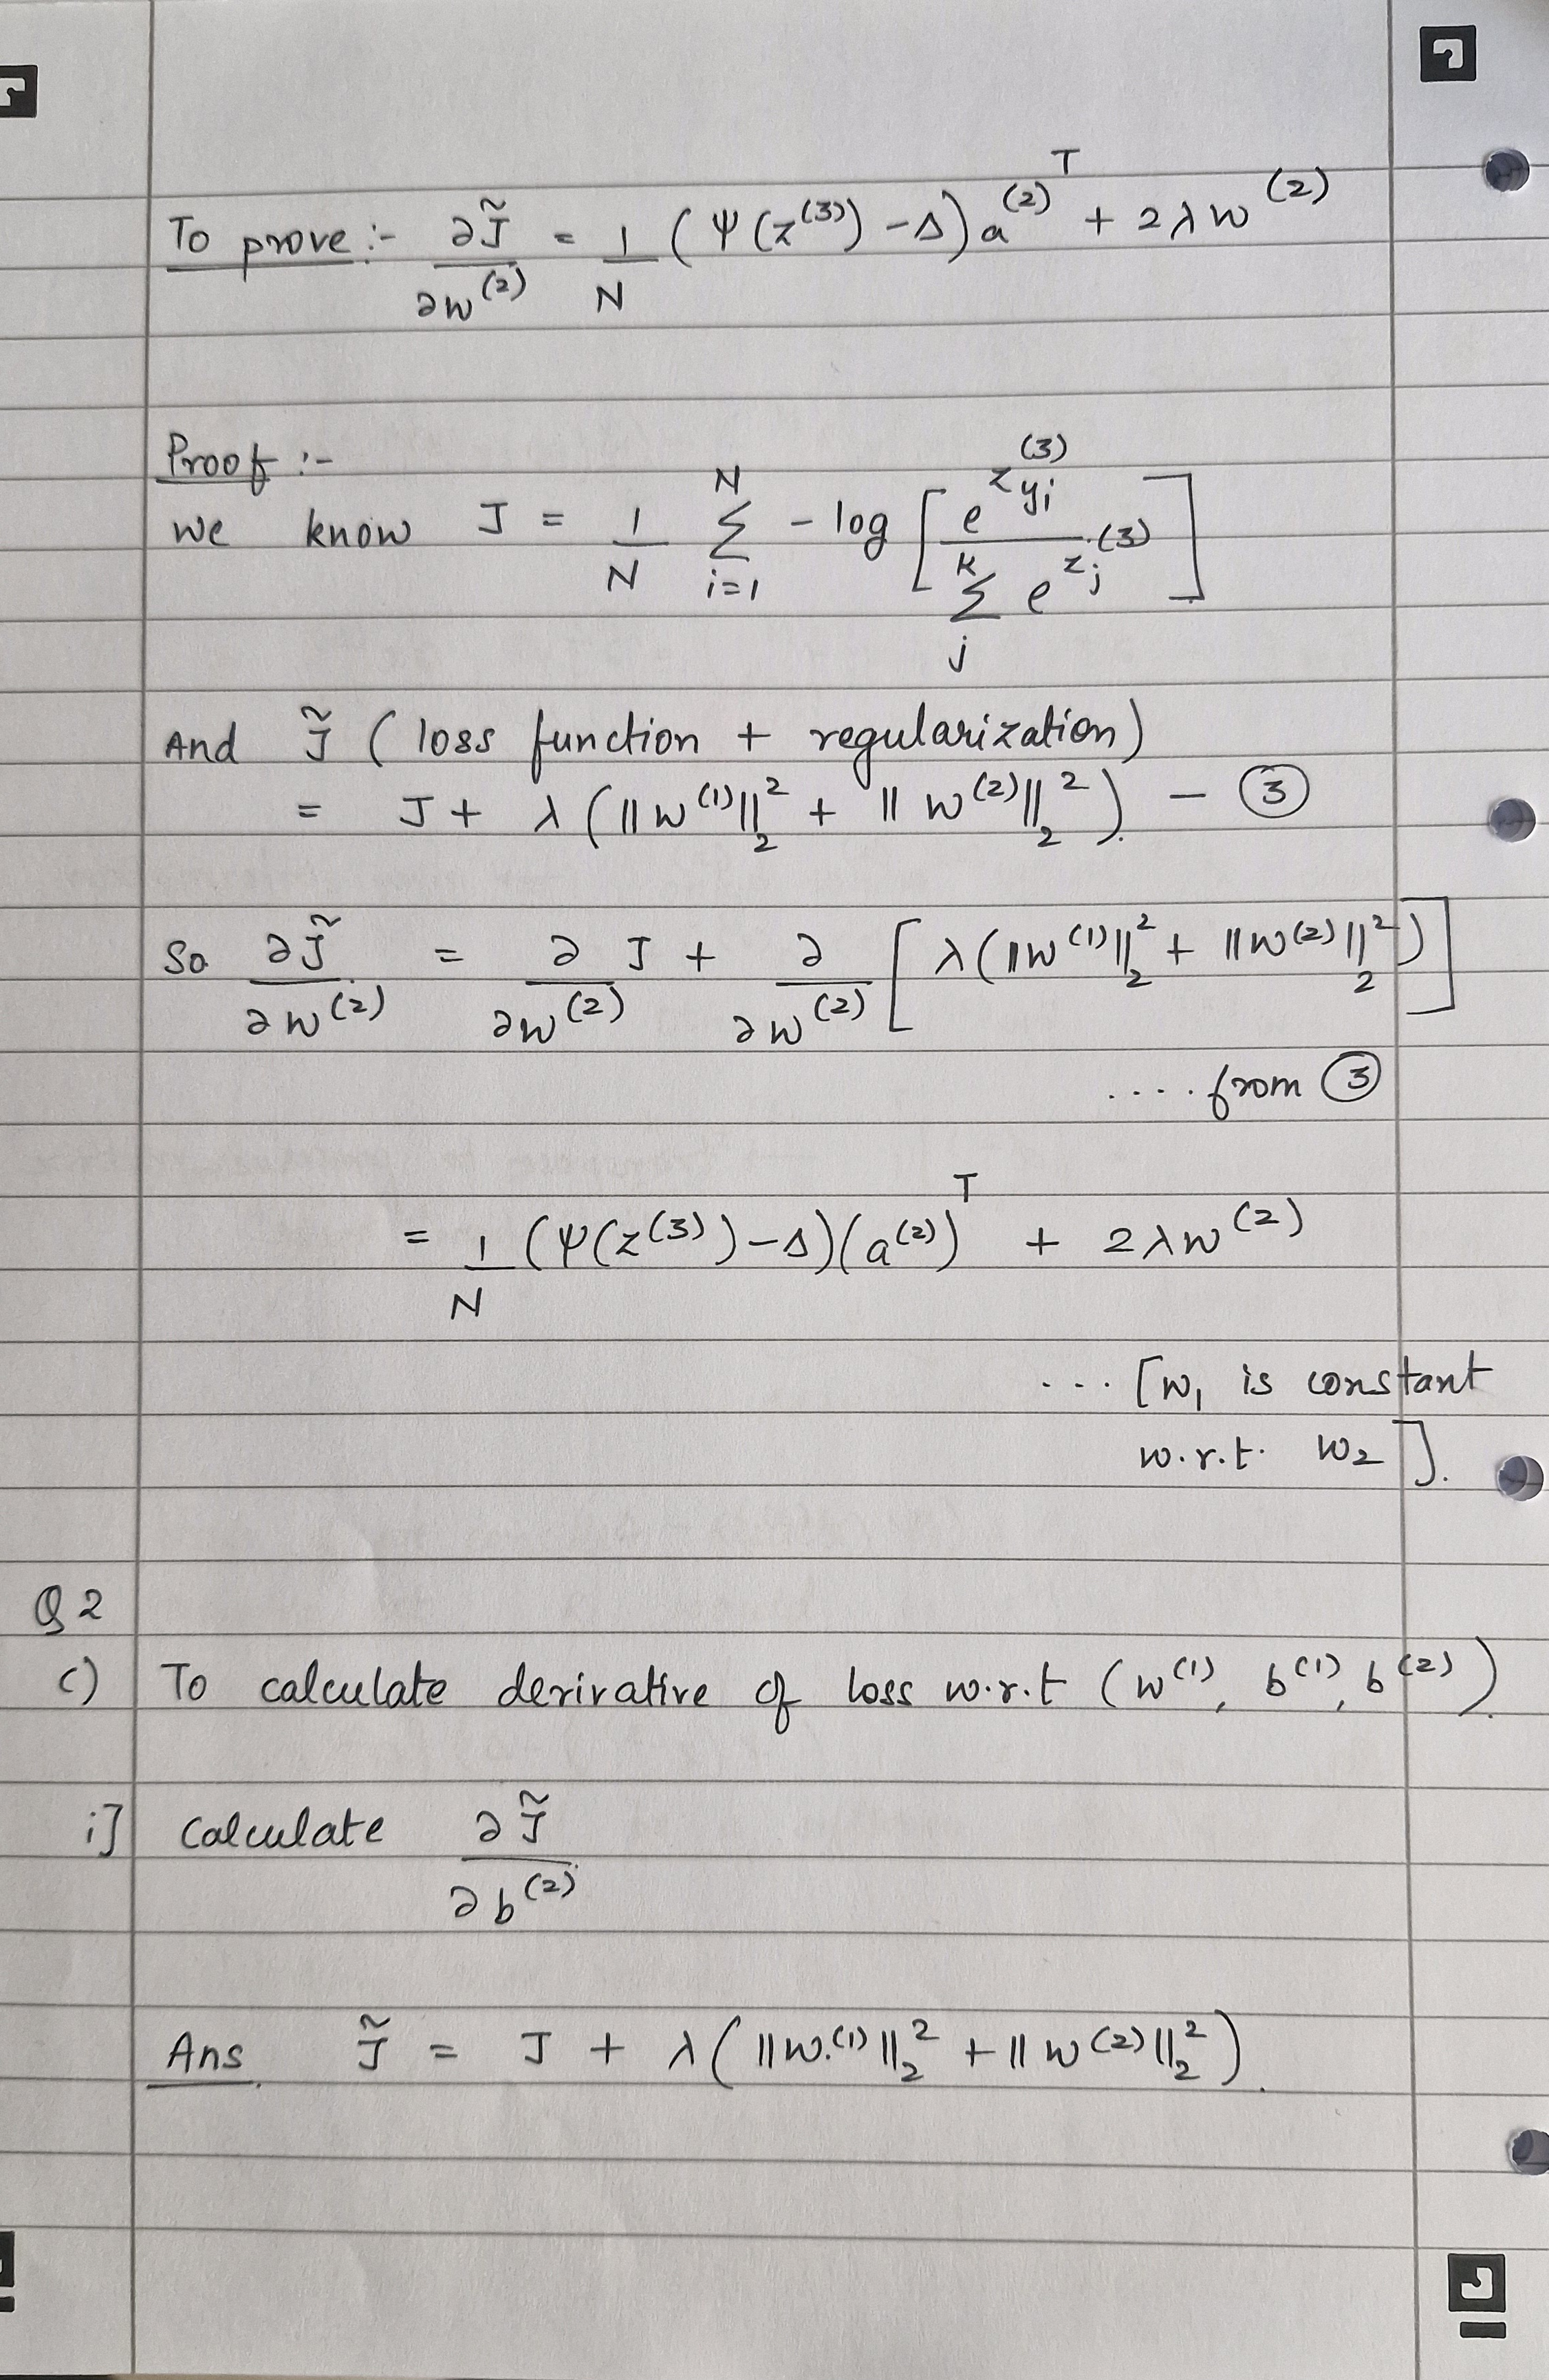 To prove :- ∂J̃/∂w^(2) = 1/N (ψ(z^(3)) - Δ) a^(2)^T + 2λw^(2)
Proof :-
we know J = 1/N Σ_{i=1}^{N} - log [ e^{z_{yi}^(3)} / Σ_j^K e^{z_j^(3)} ]
And J̃ ( loss function + regularization)
= J + λ (||w^(1)||_2^2 + || w^(2)||_2^2). - ③
So ∂J̃/∂w^(2) = ∂/∂w^(2) J + ∂/∂w^(2) [ λ(||w^(1)||_2^2 + ||w^(2)||_2^2) ]
.... from ③
= 1/N (ψ(z^(3)) - Δ)(a^(2))^T + 2λw^(2)
... [w_1 is constant
w.r.t. w_2].
Q 2
c) To calculate derivative of loss w.r.t (w^(1), b^(1), b^(2)).
i] Calculate ∂J̃/∂b^(2)
Ans. J̃ = J + λ( ||w^(1)||_2^2 + || w^(2)||_2^2).